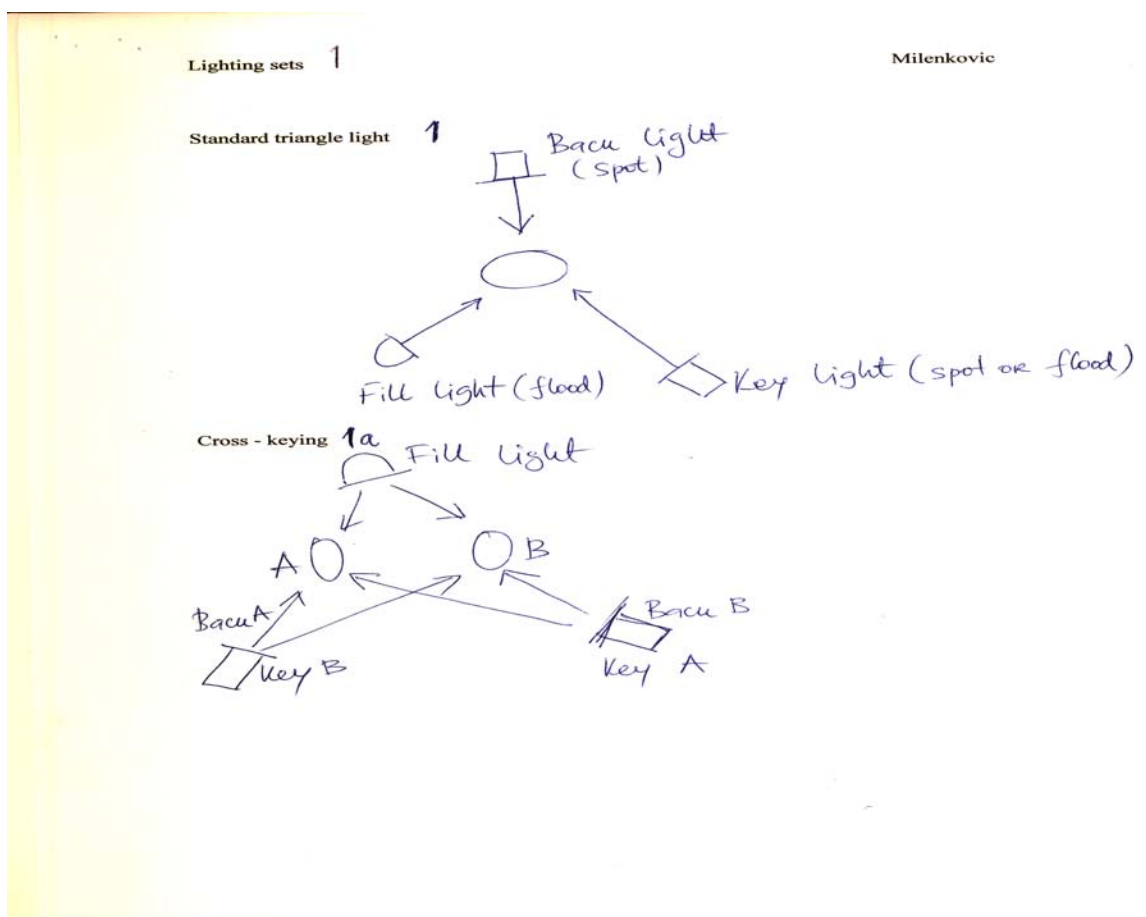 Lighting sets 1
Milenkovic
Standard triangle light 1
Back light
(spot)
Fill light (flood)
Key light (spot or flood)
Cross - keying 1a
Fill light
A
B
Back A
Key B
Back B
Key A